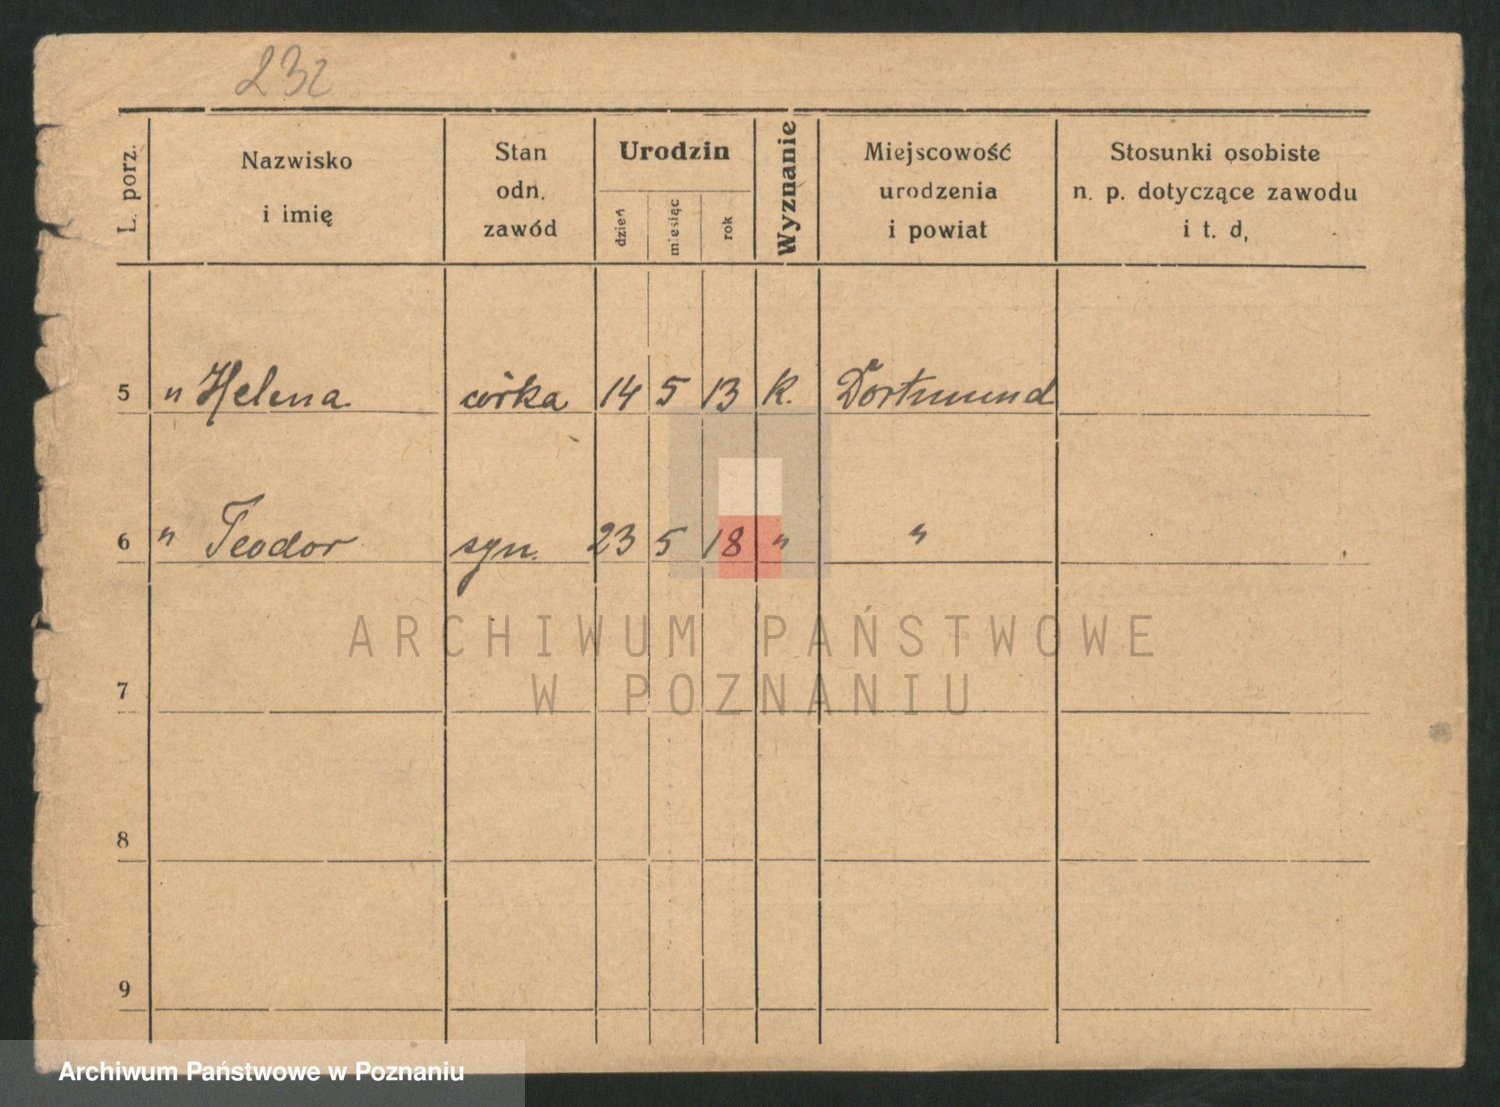 232
L. porz.
Nazwisko
i imię
Stan
odn.
zawód
Urodzin
dzień
miesiąc
rok
Wyznanie
Miejscowość
urodzenia
i powiat
Stosunki osobiste
n. p. dotyczące zawodu
i t. d,
5 " Helena córka 14 5 13 k. Dortmund
6 " Teodor syn. 23 5 18 " "
ARCHIWUM PAŃSTWOWE
W POZNANIU
7
8
9
Archiwum Państwowe w Poznaniu